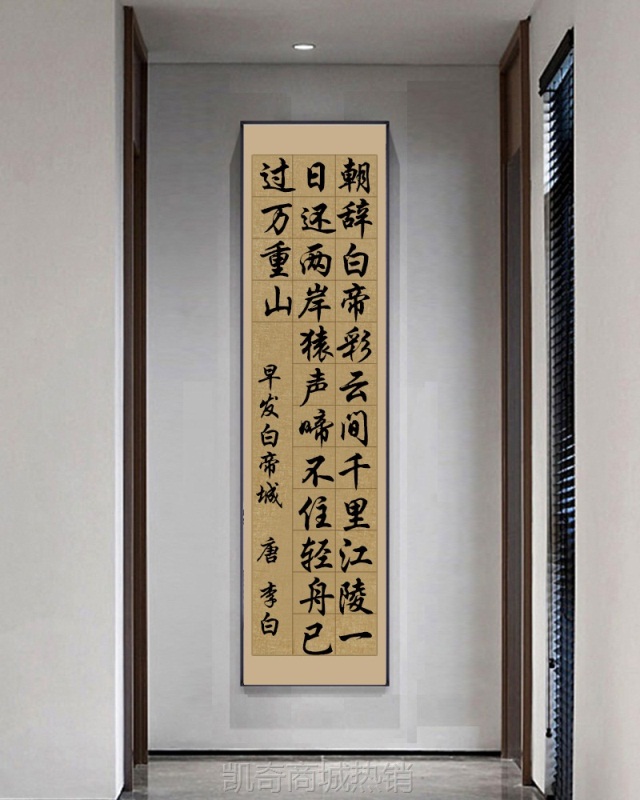 朝辞白帝彩云间千里江陵一
日还两岸猿声啼不住轻舟已
过万重山
早发白帝城 唐 李白
凯奇商城热销